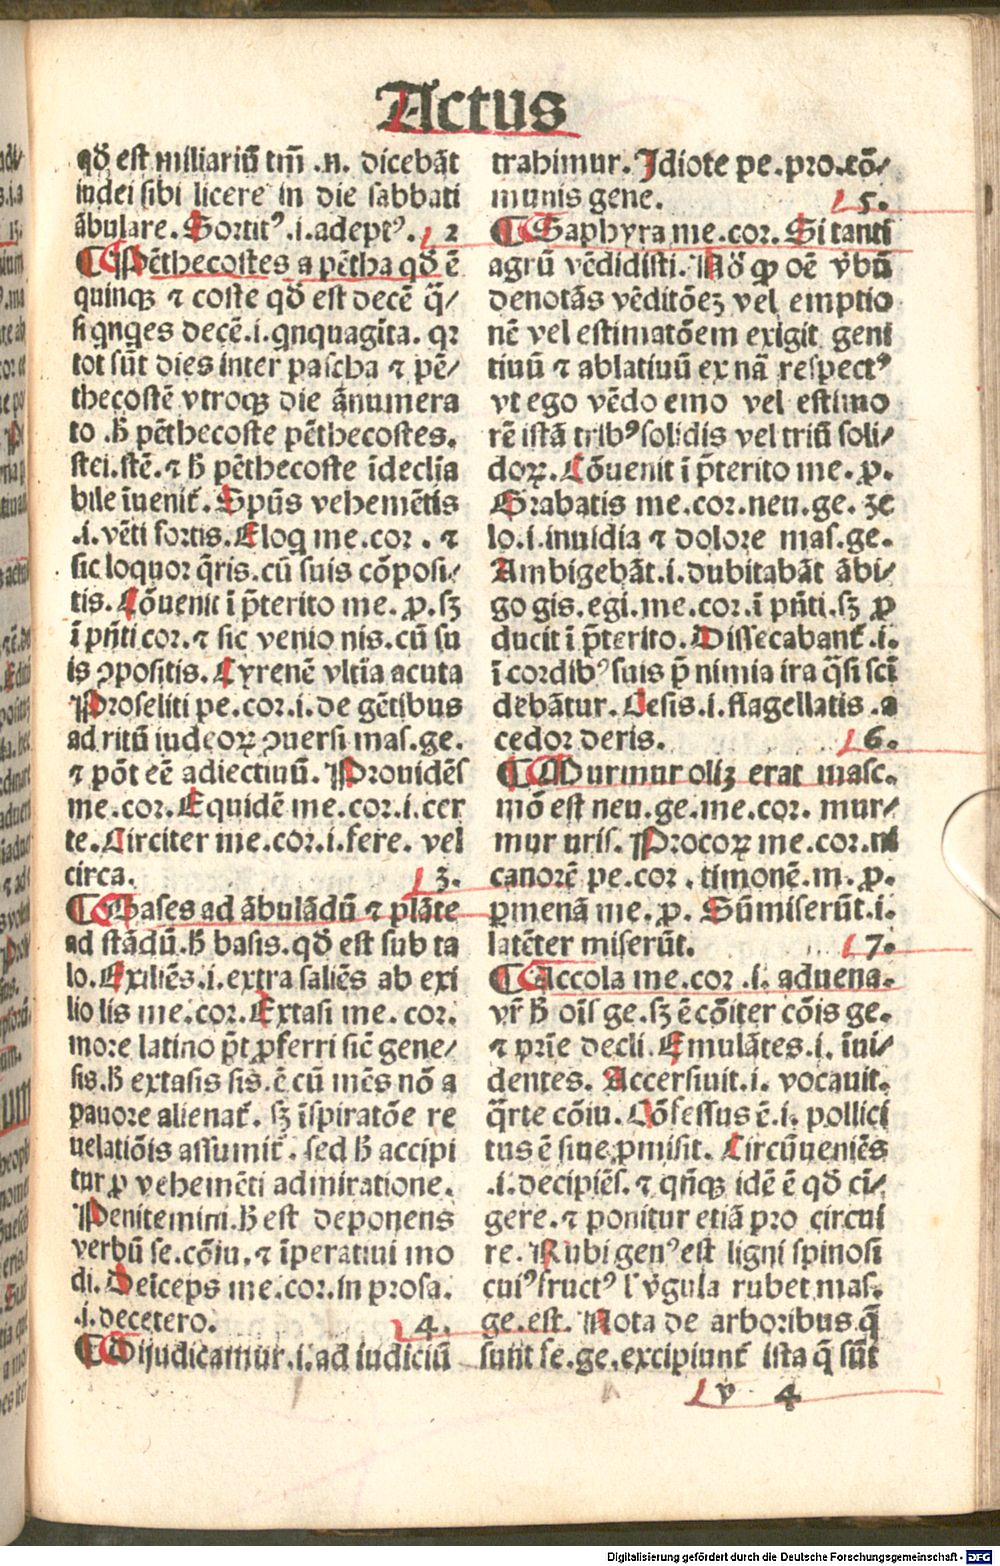 Actus
qđ est miliariū tm̄ .n. dicebāt
iudei sibi licere in die sabbati
ābulare. Sortitꝰ .i. adeptꝰ. 2
¶ Pēthecostes a pētha qđ ē
quinqꝫ ⁊ coste qđ est decē q̄/
si qnqes decē .i. qnquagīta. qꝛ
tot sūt dies inter pascha ⁊ pē/
thecostē vtroqꝫ die ānumera
to .ħ pēthecoste pēthecostes.
stei. stē. ⁊ ħ pēthecoste īdeclīa
bile īuenit᷑. Spūs vehemētis
.i. vēti fortis. Eloq me. cor. ⁊
sic loquor q̄ris. cū suis cōposi/
tis. Cōuenit ī p̄terito me. ꝓ. sꝫ
ī pn̄ti cor. ⁊ sic venio nis. cū su
is ꝯpositis. Cyrenē vltīa acuta
Proseliti pe. cor. i. de gētibus
ad ritū iudeoꝝ ꝯuersi mas. ge.
⁊ pōt eē adiectiuū. Prouidēs
me. cor. Equidē me. cor. i. cer
te. Circiter me. cor. i. fere. vel
circa. 3.
¶ Bases ad ābulādū ⁊ plāte
ad stādū. ħ basis. qđ est sub ta
lo. Exiliēs .i. extra saliēs ab exi
lio lis me. cor. Extasi me. cor.
more latino p̄t ꝓferri sic̄ gene/
sis. ħ extasis sis. ē cū mēs nō a
pauore alienat᷑. sꝫ īspiratōe re
uelatiōis assumit᷑. sed ħ accipi
tur ꝓ vehemēti admiratione.
Penitemini. ħ est deponens
verbū se. cōiu. ⁊ īperatiui mo
di. Deīceps me. cor. in prosa.
.i. decetero. 4.
¶ Dijudicamur .i. ad iudiciū
trahimur. Idiote pe. pro. cō/
munis gene. 5.
¶ Saphyra me. cor. Si tanti
agrū vēdidisti. Nō ꝙ oē v̄bū
denotās vēditōeꝫ vel emptio
nē vel estimatōem exigit geni
tiuū ⁊ ablatiuū ex nā respectꝰ
vt ego vēdo emo vel estimo
rē istā tribꝰ solidis vel triū soli/
doꝝ. Cōuenit ī p̄terito me. ꝓ.
Grabatis me. cor. neu. ge. ze
lo .i. inuidia ⁊ dolore mas. ge.
Ambigebāt .i. dubitabāt ābi/
go gis. egi. me. cor. ī pn̄ti. sꝫ ꝓ
ducit ī p̄terito. Dissecabant᷑ .i.
ī cordibꝰ suis p̄ nimia ira q̄si sci
debātur. Cesis .i. flagellatis .a
cedor deris. 6.
¶ Murmur oliꝫ erat masc.
mō est neu. ge. me. cor. mur/
mur uris. Procoꝝ me. cor. ni
canorē pe. cor. timonē. m. ꝓ.
ꝑmenā me. ꝓ. Sūmiserūt .i.
latēter miserūt. 7.
¶ Accola me. cor .i. aduena.
vr̄ ħ oīs ge. sꝫ ē cōiter cōis ge.
⁊ prīe decli. Emulātes .i. īui/
dentes. Accersiuit .i. vocauit.
q̄rte cōiu. Cōfessus ē .i. pollici
tus ē siue ꝓmisit. Circūueniēs
.i. decipiēs. ⁊ qn̄qꝫ idē ē qđ cī/
gere. ⁊ ponitur etiā pro circui
re. Rubi genꝰ est ligni spinosi
cuiꝰ fructꝰ l' v̄gula rubet mas.
ge. est. Nota de arboribus q̄
sunt fe. ge. excipiunt᷑ ista q̄ sūt
v 4
Digitalisierung gefördert durch die Deutsche Forschungsgemeinschaft - DFG